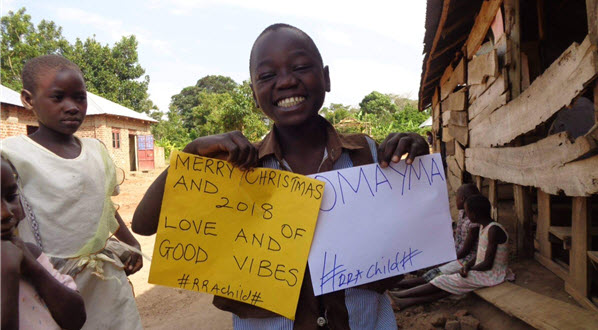 MERRY CHRISTMAS
AND 2018
LOVE AND OF
GOOD VIBES
#RRAchild#
OMAYMA
#RRAchild#